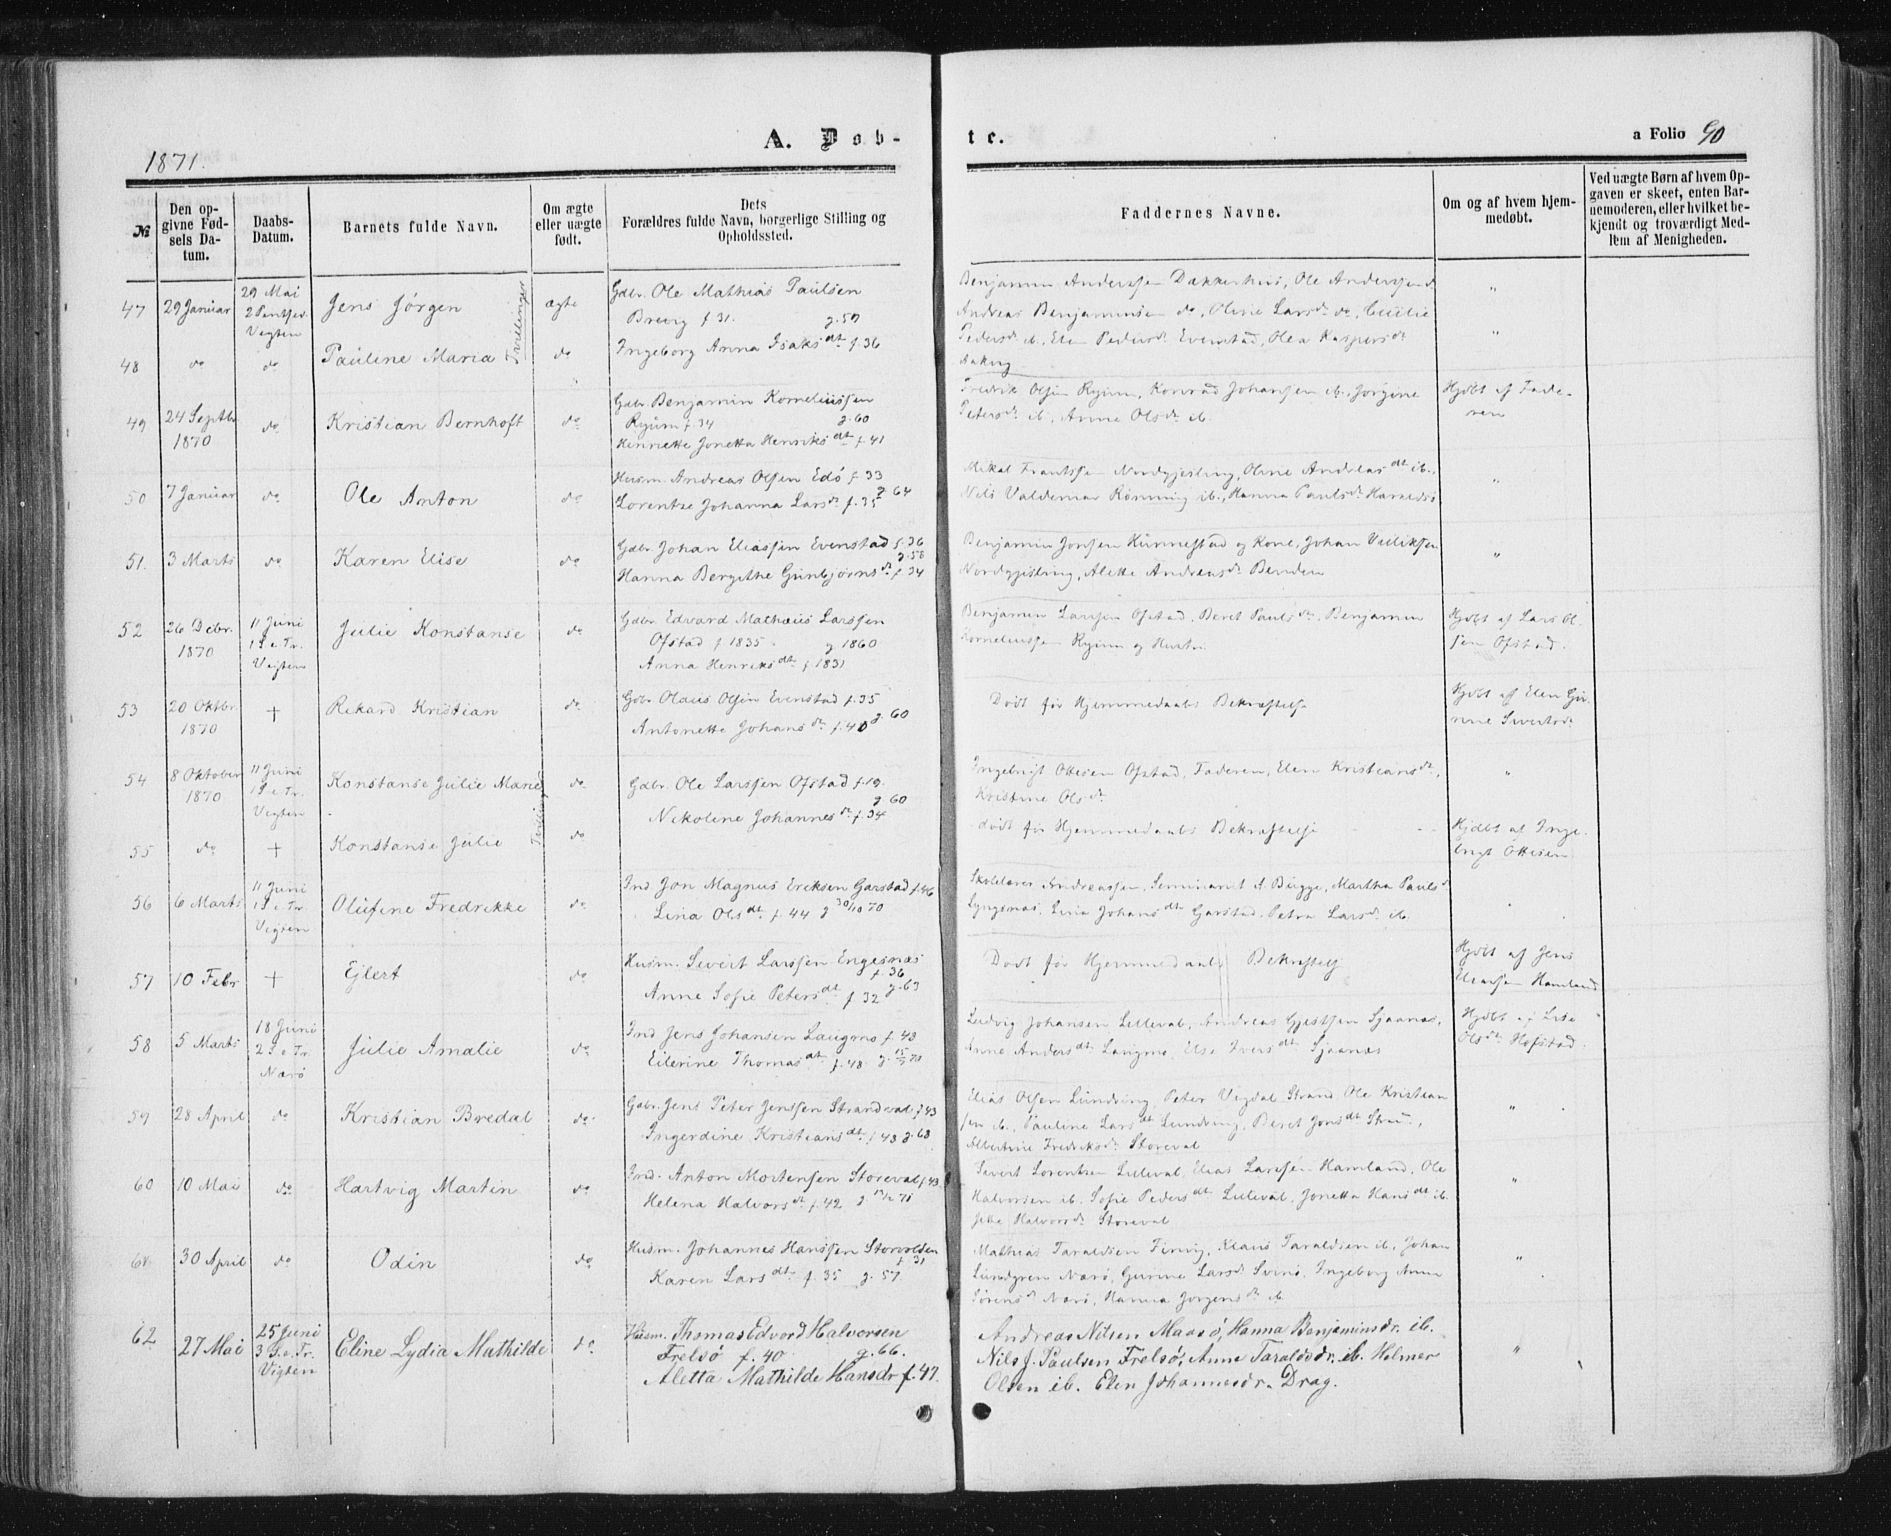 1871.
A. Døb-
te.
a Folio 90
№
Den opgivne Fødsels Datum.
Daabs-Datum.
Barnets fulde Navn.
Om ægte eller uægte født.
Dets Forældres fulde Navn, borgerlige Stilling og Opholdssted.
Faddernes Navne.
Om og af hvem hjemmedøbt.
Ved uægte Børn af hvem Opgaven er skeet, enten Barnemoderen, eller hvilket bekjendt og troværdigt Medlem af Menigheden.
47 29 Januar 29 Mai 2 Pintsed. Vegten Jens Jørgen Tvillinger ægte
Gdbr. Ole Mathias Paulsen
Brevig f 31. g. 57
Benjamin Anderssen Dakkerhus, Ole Anderssen do
Andreas Benjaminsen do, Oline Larsdr do, Cecilie
48 do do Pauline Maria do
Ingeborg Anna Isaksdt f. 36
Pedersdr ib, Elen Pedersdr Evenstad, Olea Kaspersdt
Aaking
49 24 Septbr 1870 do Kristian Bernhoft do
Gdbr. Benjamin Korneliussen
Ryum f. 34 g. 60
Henriette Jonetta Henriksdt f. 41
Fredrik Olsen Ryum, Konrad Johansen ib., Jørgine
Petersdr ib, Anne Olsdr ib.
Hjdbt af Faderen
50 7 Januar do Ole Anton do
Husm. Andreas Olsen Edø f. 33
Lorentse Johanna Larsdr f. 35 g 64
Mikal Frantssen Nordgjesling, Oline Andreasdt ib.,
Nils Valdemar Rønning ib., Hanna Paulsdr Haraldsø
51. 3 Marts do Karen Elise do
Gdbr. Johan Eliassen Evenstad f. 36
g. 58
Hanna Bergithe Gunbjørnsdr f. 34
Benjamin Jonsen Kunnestad og Kone, Johan
Nordgjesling, Alette Andreasdr Benden
52 26 Debr. 1870 11 Juni 1 S. e. Tr. Vegten Julie Konstanse do
Gdbr. Edvard Mathæus Larssen
Ofstad f 1835 g 1860
Anna Henriksdt f. 1831
Benjamin Larssen Ofstad, Beret Paulsdr, Benjamin
Korneliussen Ryum og Hustru
Hjdbt af Lars Olsen Ofstad.
53 20 Oktbr. 1870 + Rikard Kristian do
Gdbr. Olaus Olsen Evenstad f. 35
Antonette Johansdr f. 40 g. 60
Dødt før Hjemmedaabs Bekræftelse
Hjdbt af Elen Gurine Sivertsdr
54 8 Oktober 1870 11 Juni 1 S e. Tr. Vegten Konstanse Julie Marie Tvillinger do
Gdbr. Ole Larssen Ofstad f. 19.
g 60
Nikoline Johannesdr f. 34
Ingebrigt Ottesen Ofstad, Faderen, Elen Kristiansdt,
Kristine Olsdt
55 do + Konstanse Julie do
dødt før Hjemmedaabs Bekræftelse
Hjdbt af Ingebrigt Ottesen
56 6 Marts 11 Juni 1 S e. Tr. Vegten Olufine Fredrikke do
Ind. Jon Magnus Eriksen Garstad f. 46
Lina Olsdt f. 44 g 30/10 70
Skolelærer Andreassen, Seminarist A. Bugge, Martha Paulsd
Lyngsnæs, Lina Johansdt Garstad, Petra Larsdr ib.
57 10 Febr + Ejlert do
Husm. Sivert Larssen Engesnæs
f. 36
Anne Sofie Petersdt f. 32 g. 63
Dødt før Hjemmedaabs Bekræftelse
Hjdbt af Jens Eliassen Hamland
58 5 Marts 18 Juni 2 S. e Tr. Nærø Julie Amalie do
Ind Jens Johansen Laugmo f. 43
Eilerine Thomasdt f. 48 g. 15/7 70
Ludvig Johansen Lilleval, Andreas Gjestsen Sjaanæs,
Anne Andersdt Laugmo, Else Iversdt Sjaanæs
Hjdbt af Lise Olsdt Hofstad.
59 28 April do Kristian Bredal do
Gdbr. Jens Peter Jenssen Strandval f 43
Ingerdine Kristiansdt f 43 g. 68
Elias Olsen Lundring, Peter Vigdal Strand, Ole Kristiansen ib., Pauline Larsdt Lundring, Beret Jonsdt Strand,
Albertine Fredriksdr Storeval
60 10 Mai do Hartvig Martin do
Ind. Anton Mortensen Storeval f 43
Helena Halvorsdt f. 42
Sivert Lorentsen Lilleval, Elias Larssen Hamland, Ole
Halvorsen ib. Sofie Pedersdt Lilleval, Jonetta Hansdt ib.
Halvorsdr Storeval
61 30 April do Odin do
Husm. Johannes Hanssen Storvolden
f. 31
Karen Larsdt f. 35 g. 57
Mathias Taraldsen Finvig, Klaus Taraldsen ib, Johan
Lundgren Nærø, Gurine Larsdr Svinø, Ingeborg Anna
Sørensdr Nærø, Hanna Jørgensdr ib
62 27 Mai 25 Juni 3 S. e. Tr. Vigten Eline Lydia Mathilde do
Husm. Thomas Edvord Halvorsen
Frelsø f. 40. g. 66.
Aletta Mathilde Hansdr f. 47.
Andreas Nilsen Maasø, Hanna Benjaminsdr. ib.
Nils J. Paulsen Frelsø, Anne Taraldsdr. ib. Helmer
Olsen ib. Elen Johannesdr. Drag.